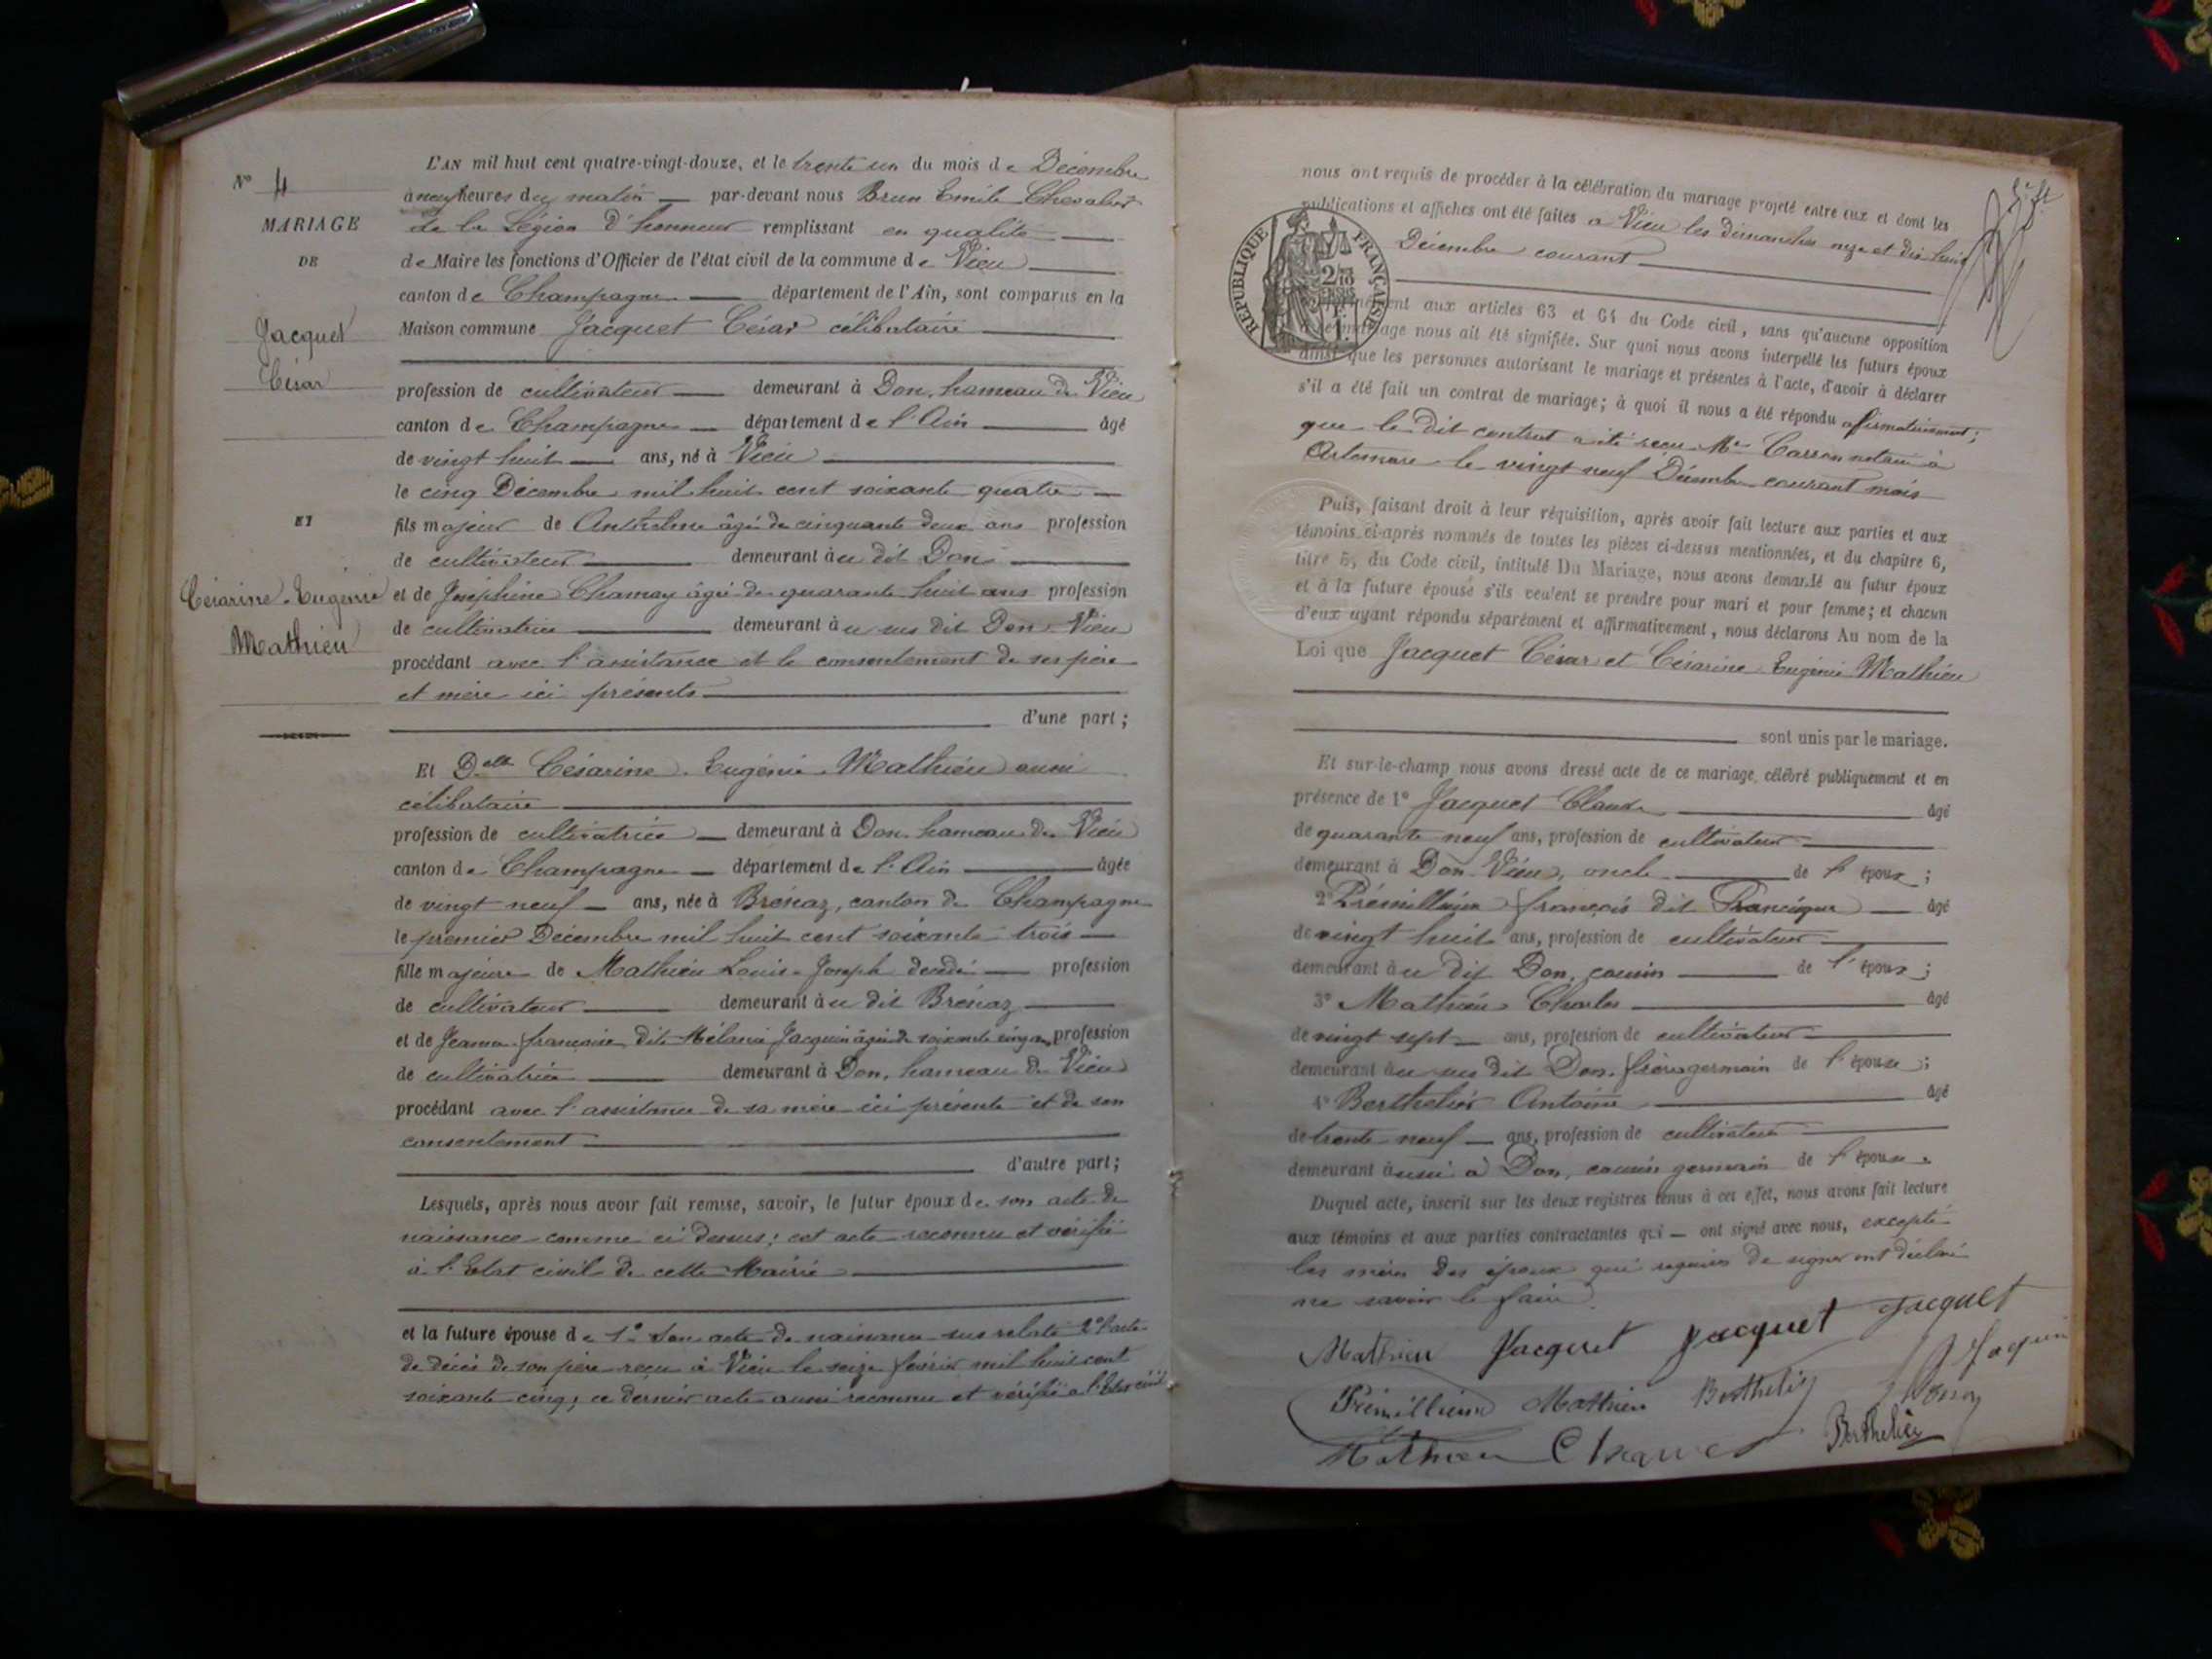 N° 4
MARIAGE
DE
Jacquet
César
ET
Césarine-Eugénie
Mathieu
L'AN mil huit cent quatre-vingt-douze, et le trente un du mois de Décembre
à neuf heures du matin — par-devant nous Brun Emile Chevalier
de la Légion d'honneur remplissant en qualité
de Maire les fonctions d'Officier de l'état civil de la commune de Vieu
canton de Champagne — département de l'Ain, sont comparus en la
Maison commune Jacquet César célibataire
profession de cultivateur — demeurant à Don, hameau de Vieu
canton de Champagne — département de l'Ain — âgé
de vingt huit — ans, né à Vieu
le cinq Décembre mil huit cent soixante quatre —
fils majeur de Anthelme âgé de cinquante deux ans profession
de cultivateur — demeurant au dit Don
et de Joséphine Chamay âgée de quarante huit ans profession
de cultivatrice — demeurant au sus dit Don-Vieu
procédant avec l'assistance et le consentement de ses père
et mère ici présents
d'une part;
Et Delle Césarine-Eugénie Mathieu aussi
célibataire
profession de cultivatrice — demeurant à Don hameau de Vieu
canton de Champagne — département de l'Ain — âgée
de vingt neuf — ans, née à Brénaz, canton de Champagne
le premier Décembre mil huit cent soixante trois —
fille majeure de Mathieu Louis-Joseph décédé — profession
de cultivateur — demeurant au dit Brénaz
et de Jeanne-françoise dite Mélanie Jacquin âgée de soixante cinq ans profession
de cultivatrice — demeurant à Don, hameau de Vieu
procédant avec l'assistance de sa mère ici présente et de son
consentement
d'autre part;
Lesquels, après nous avoir fait remise, savoir, le futur époux de son acte de
naissance comme ci dessus; cet acte reconnu et vérifié
à l'Etat civil de cette Mairie
et la future épouse de 1° son acte de naissance sus relaté 2° l'acte
de décès de son père reçu à Vieu le seize février mil huit cent
soixante cinq, ce dernier acte aussi reconnu et vérifié à l'Etat civil
nous ont requis de procéder à la célébration du mariage projeté entre eux et dont les
publications et affiches ont été faites à Vieu les dimanches onze et dix huit
Décembre courant
REPUBLIQUE FRANÇAISE
aux articles 63 et 64 du Code civil, sans qu'aucune opposition
nous ait été signifiée. Sur quoi nous avons interpellé les futurs époux
ainsi que les personnes autorisant le mariage et présentes à l'acte, d'avoir à déclarer
s'il a été fait un contrat de mariage; à quoi il nous a été répondu afirmativement;
que le dit contrat a été reçu Me Carron notaire à
Artemare le vingt neuf Décembre courant mois
Puis, faisant droit à leur réquisition, après avoir fait lecture aux parties et aux
témoins ci-après nommés de toutes les pièces ci-dessus mentionnées, et du chapitre 6,
titre 5, du Code civil, intitulé Du Mariage, nous avons demandé au futur époux
et à la future épouse s'ils veulent se prendre pour mari et pour femme; et chacun
d'eux ayant répondu séparément et affirmativement, nous déclarons Au nom de la
Loi que Jacquet César et Césarine-Eugénie Mathieu
sont unis par le mariage.
Et sur-le-champ nous avons dressé acte de ce mariage, célébré publiquement et en
présence de 1° Jacquet Claude — âgé
de quarante neuf ans, profession de cultivateur
demeurant à Don-Vieu, oncle — de l'époux;
2° Prémillieu françois dit Francique — âgé
de vingt huit ans, profession de cultivateur
demeurant au dit Don, cousin — de l'époux;
3° Mathieu Charles — âgé
de vingt sept — ans, profession de cultivateur
demeurant au sus dit Don, frère germain de l'épouse;
4° Berthelier Antoine — âgé
de trente neuf — ans, profession de cultivateur
demeurant aussi à Don, cousin germain de l'épouse.
Duquel acte, inscrit sur les deux registres tenus à cet effet, nous avons fait lecture
aux témoins et aux parties contractantes qui — ont signé avec nous, excepté
les mères des époux qui requises de signer ont déclaré
ne savoir le faire.
Mathieu Jacquet Jacquet Jacquet
J Jaquin
Prémillieu Mathieu Berthelier
Mathieu Berthelier